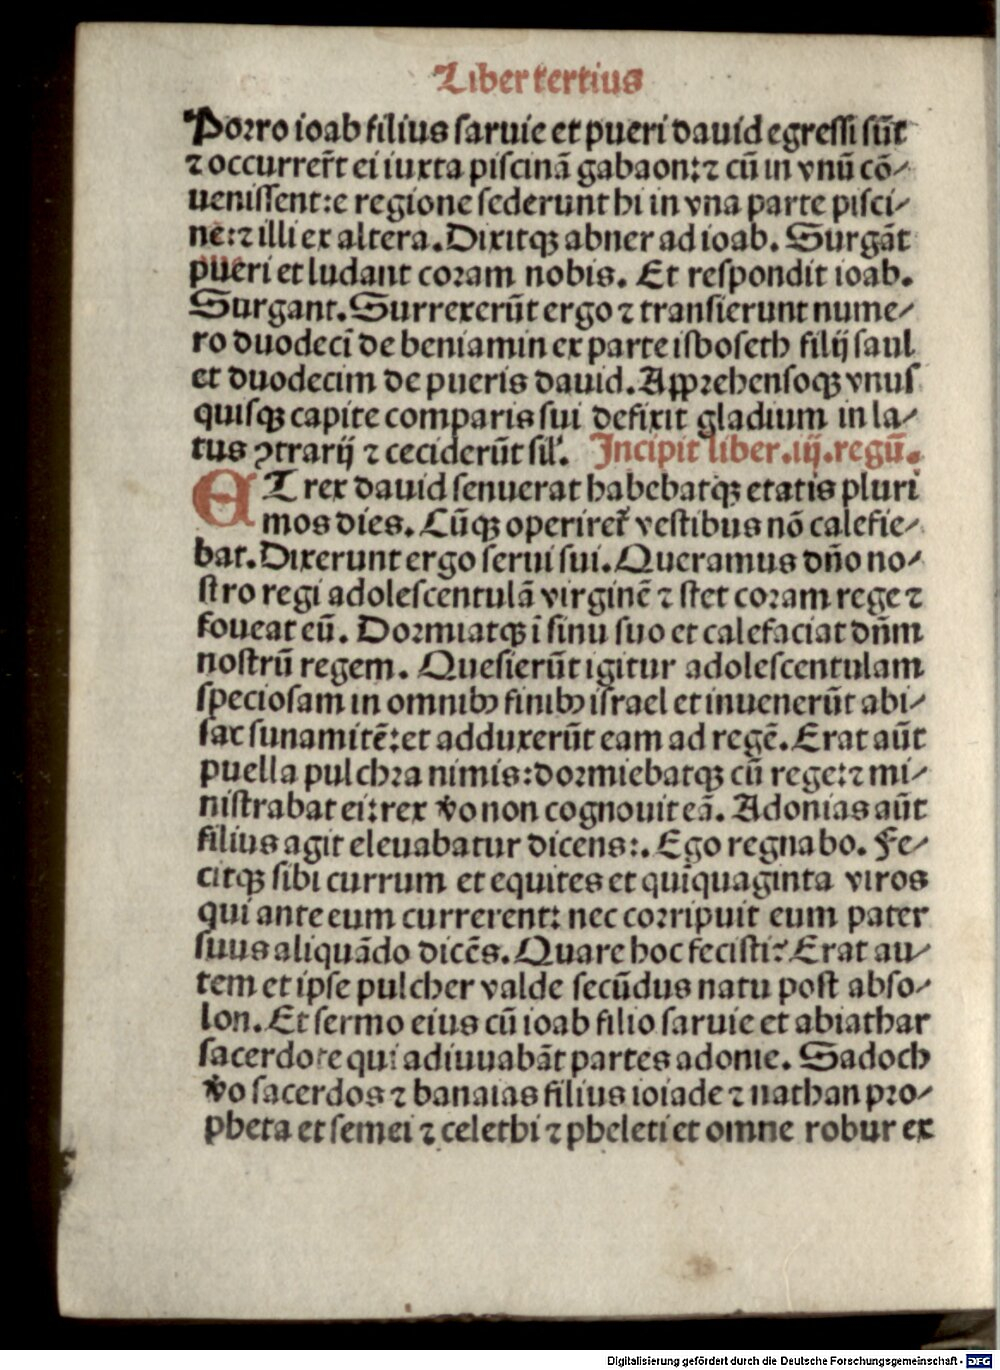 Liber tertius
Porro ioab filius saruie et pueri dauid egressi sūt
⁊ occurrer̄t ei iuxta piscinā gabaon:⁊ cū in vnū cō-
uenissent:e regione sederunt hi in vna parte pisci-
ne:⁊ illi ex altera. Dixitqꝫ abner ad ioab. Surgāt
pueri et ludant coram nobis. Et respondit ioab.
Surgant. Surrexerūt ergo ⁊ transierunt nume-
ro duodeci de beniamin ex parte isboseth filij saul
et duodecim de pueris dauid. Apprehensoqꝫ vnus
quisqꝫ capite comparis sui defixit gladium in la-
tus ꝯtrarij ⁊ ceciderūt sil'. Incipit liber.iij.regū.
ET rex dauid senuerat habebatqꝫ etatis pluri
mos dies. Cūqꝫ operiret᷑ vestibus nō calefie-
bat. Dixerunt ergo serui sui. Queramus dño no-
stro regi adolescentulā virginē ⁊ stet coram rege ⁊
foueat eū. Dormiatqꝫ ī sinu suo et calefaciat dn̄m
nostrū regem. Quesierūt igitur adolescentulam
speciosam in omnibꝰ finibꝰ israel et inuenerūt abi-
sac sunamitē:et adduxerūt eam ad regē. Erat aūt
puella pulchra nimis:dormiebatqꝫ cū rege:⁊ mi-
nistrabat ei:rex v̄o non cognouit eā. Adonias aūt
filius agit eleuabatur dicens:. Ego regnabo. Fe-
citqꝫ sibi currum et equites et quīquaginta viros
qui ante eum currerent: nec corripuit eum pater
suus aliquādo dicēs. Quare hoc fecisti? Erat au-
tem et ipse pulcher valde secūdus natu post abso-
lon. Et sermo eius cū ioab filio saruie et abiathar
sacerdote qui adiuuabāt partes adonie. Sadoch
v̄o sacerdos ⁊ banaias filius ioiade ⁊ nathan pro-
pheta et semei ⁊ celethi ⁊ pheleti et omne robur ex
Digitalisierung gefördert durch die Deutsche Forschungsgemeinschaft - DFG